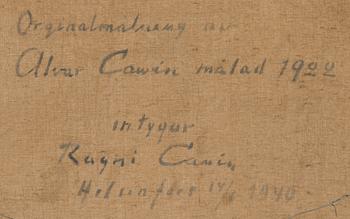 Orginalmalning av
Alvar Cawén målad 1922
intygar
Ragni Cawén
Helsinfors 14/6 1940